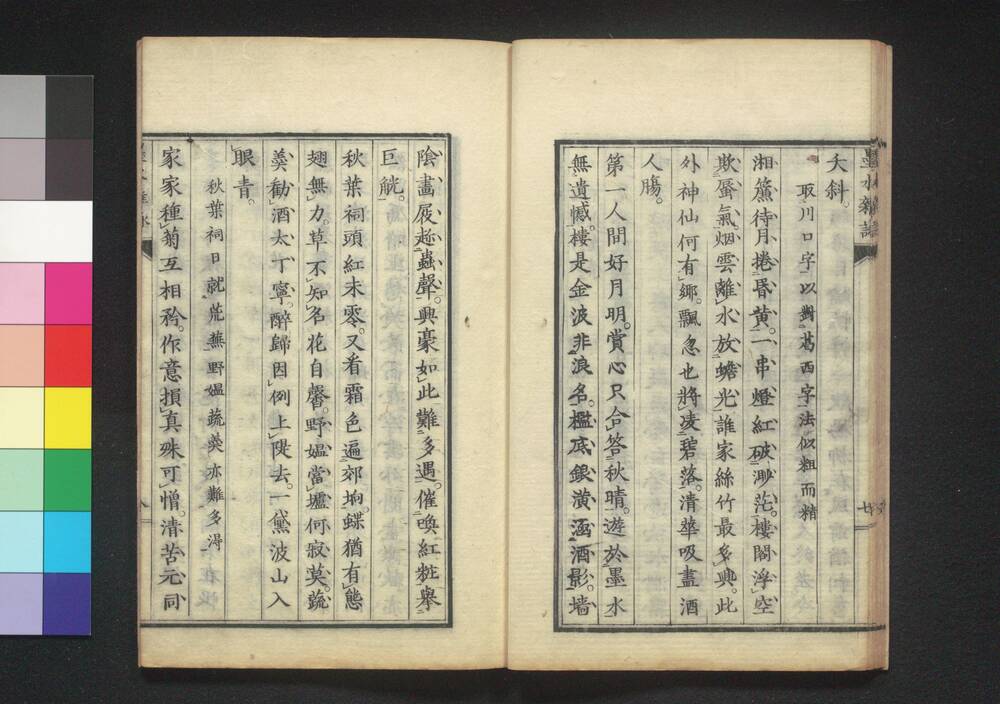 墨水雜詠
大斜。
取川口字以對葛西字法似粗而精
湘簾待月捲昏黄。一串燈紅破渺茫。樓閣浮空
欺蜃氣。烟雲離水放蟾光。誰家絲竹最多興。此
外神仙何有鄉。飄忽也將凌碧落。清華吸盡酒
人腸。
第一人間好月明。賞心只合答秋晴。遊於墨水
無遺憾。樓是金波非浪名。檻底銀潢涵酒影。墻
陰畵屐趁蟲聲。興豪如此難多遇。催喚紅粧擧
巨觥。
秋葉祠頭紅未零。又看霜色遍郊坰。蝶猶有態
翅無力。草不知名花自馨。野媼當壚何寂莫。蔬
羮勸酒太丁寧。醉歸因例上堤去。一黛波山入
眼青。
秋葉祠日就荒蕪野媼蔬羮亦難多淂
家家種菊互相矜。作意損真殊可憎。清苦元同